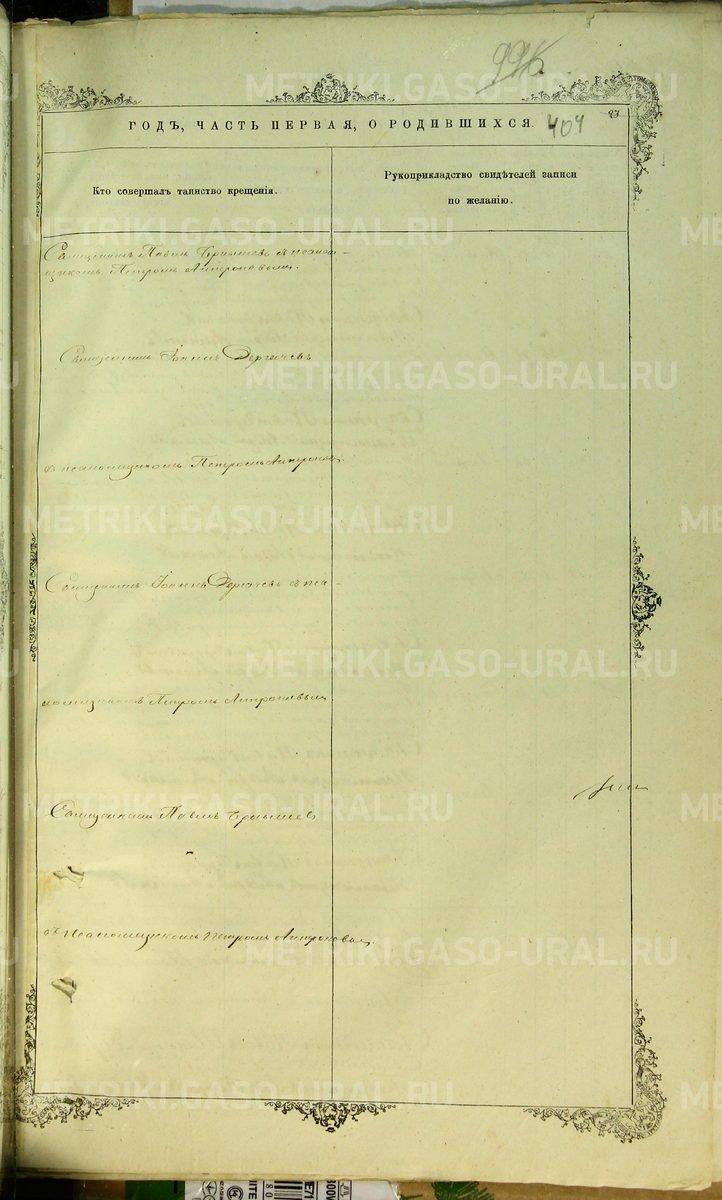 996
ГОДЪ, ЧАСТЬ ПЕРВАЯ, О РОДИВШИХСЯ. 404 97
Кто совершалъ таинство крещенія.
Рукоприкладство свидѣтелей записи
по желанію.
Священникъ Павелъ съ псалом-
щикомъ Петромъ Антроповымъ.
Священникъ Іоаннъ Дергачевъ
съ псаломщикомъ Петромъ Антроповы
Священникъ Іоаннъ Дергачевъ съ пса-
ломщикомъ Петромъ Антроповымъ.
Священникъ Павелъ
съ псаломщикомъ Петромъ Антроповым.
METRIKI.GASO-URAL.RU